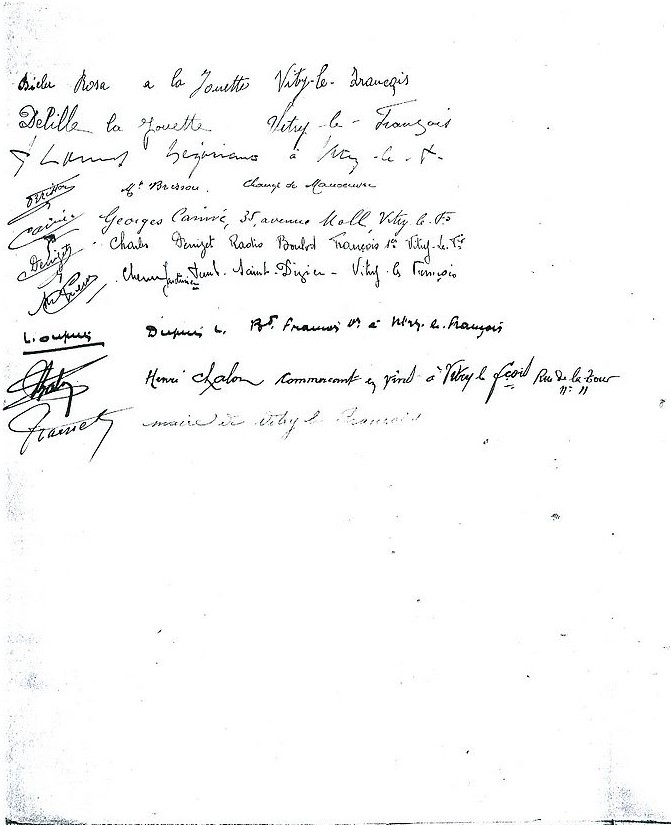 Rosa a la Jouette Vitry-le-François
Delille la Jouette Vitry-le-François
à Vitry-le-F.
Brisson Mt Brisson. Champ de Manoeuvre
Carivé Georges Carivé, 35, avenue Moll, Vitry-le-Fs
Denizet Charles Denizet Radio Boulvd François 1er Vitry-le-Fs
Saint-Dizier - Vitry-le François
L. Dupuis Dupuis L. Bd François 1er à Vitry-le-François
Henri Chalon Commerçant en vins à Vitry le fçois Rue de la Tour
n° 11
maire de Vitry le François